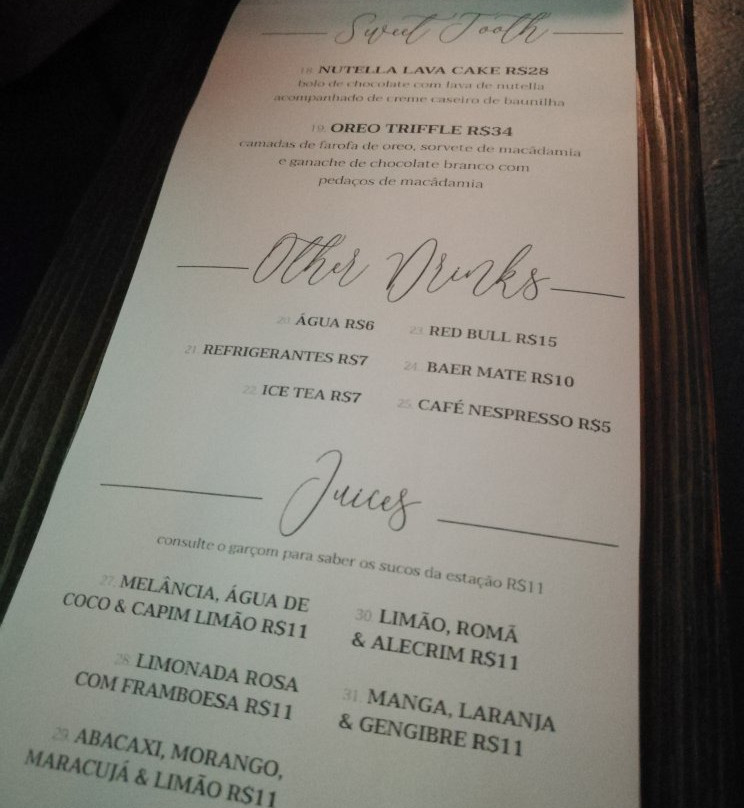 Sweet Tooth
18. NUTELLA LAVA CAKE RS28
bolo de chocolate com lava de nutella
acompanhado de creme caseiro de baunilha
19. OREO TRIFFLE RS34
camadas de farofa de oreo, sorvete de macâdamia
e ganache de chocolate branco com
pedaços de macâdamia
Other Drinks
20. ÁGUA RS6
21. REFRIGERANTES RS7
22. ICE TEA RS7
23. RED BULL RS15
24. BAER MATE RS10
25. CAFÉ NESPRESSO R$5
Juices
consulte o garçom para saber os sucos da estação RS11
27. MELÂNCIA, ÁGUA DE
COCO & CAPIM LIMÃO RS11
28. LIMONADA ROSA
COM FRAMBOESA R$11
29. ABACAXI, MORANGO,
MARACUJÁ & LIMÃO RS11
30. LIMÃO, ROMÃ
& ALECRIM RS11
31. MANGA, LARANJA
& GENGIBRE RS11